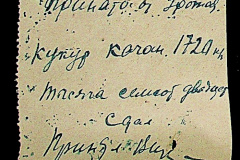 Принято от Урожая
кукур качан. 1720 кг
Тысяча семсот двадцать
Сдал
Принял